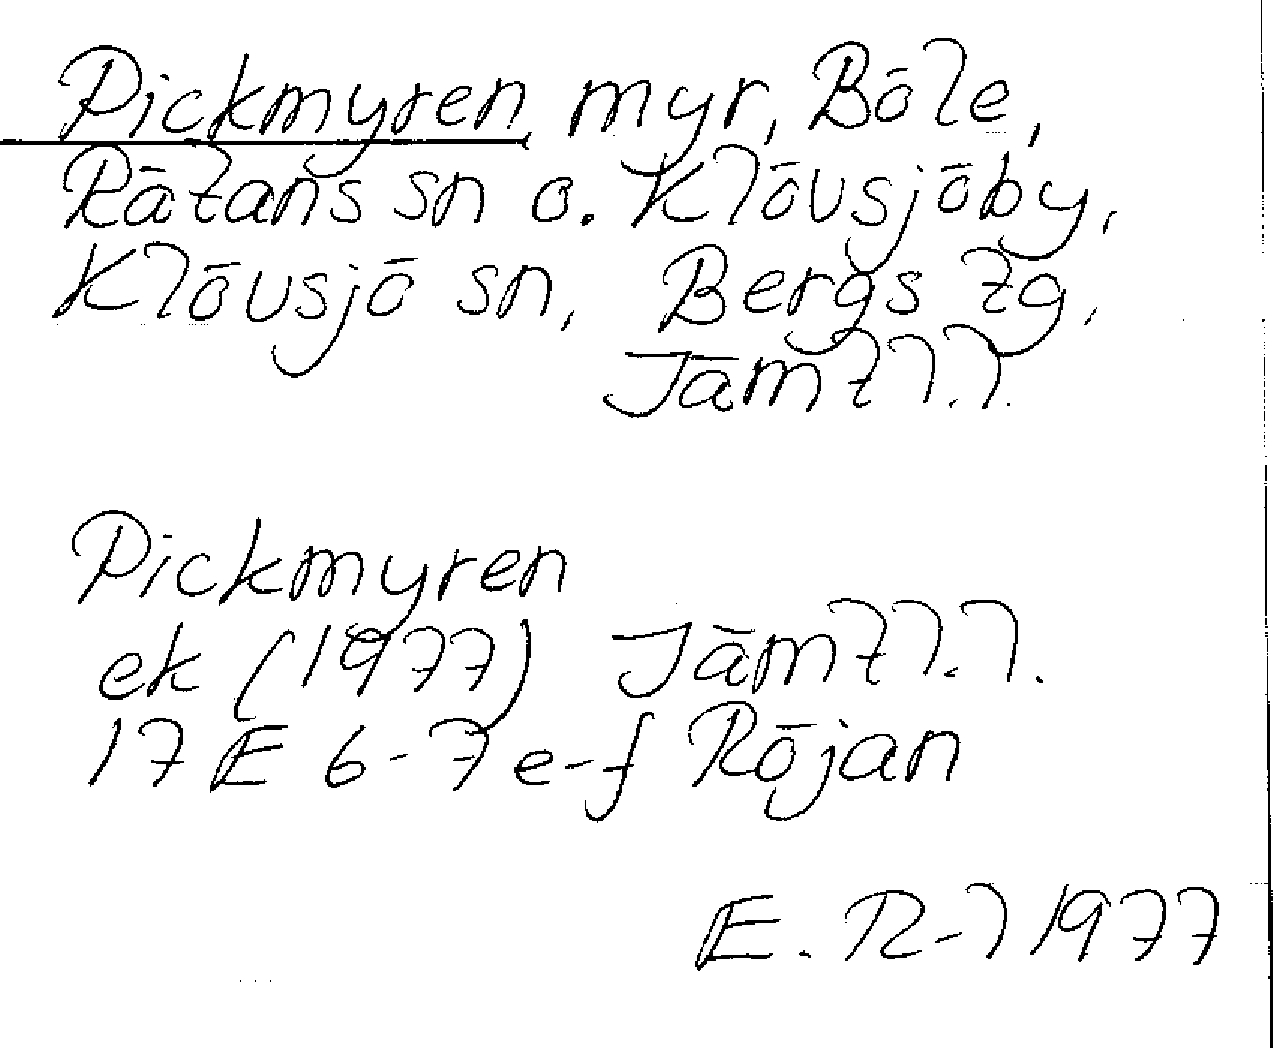 Pickmyren, myr, Böle,
Rätans sn o. Klövsjöby,
Klövsjö sn, Bergs tg,
Jämtl.l.
Pickmyren
ek (1977) Jämtl.l.
17 E 6-7 e-f Röjan
E. R-l 1977